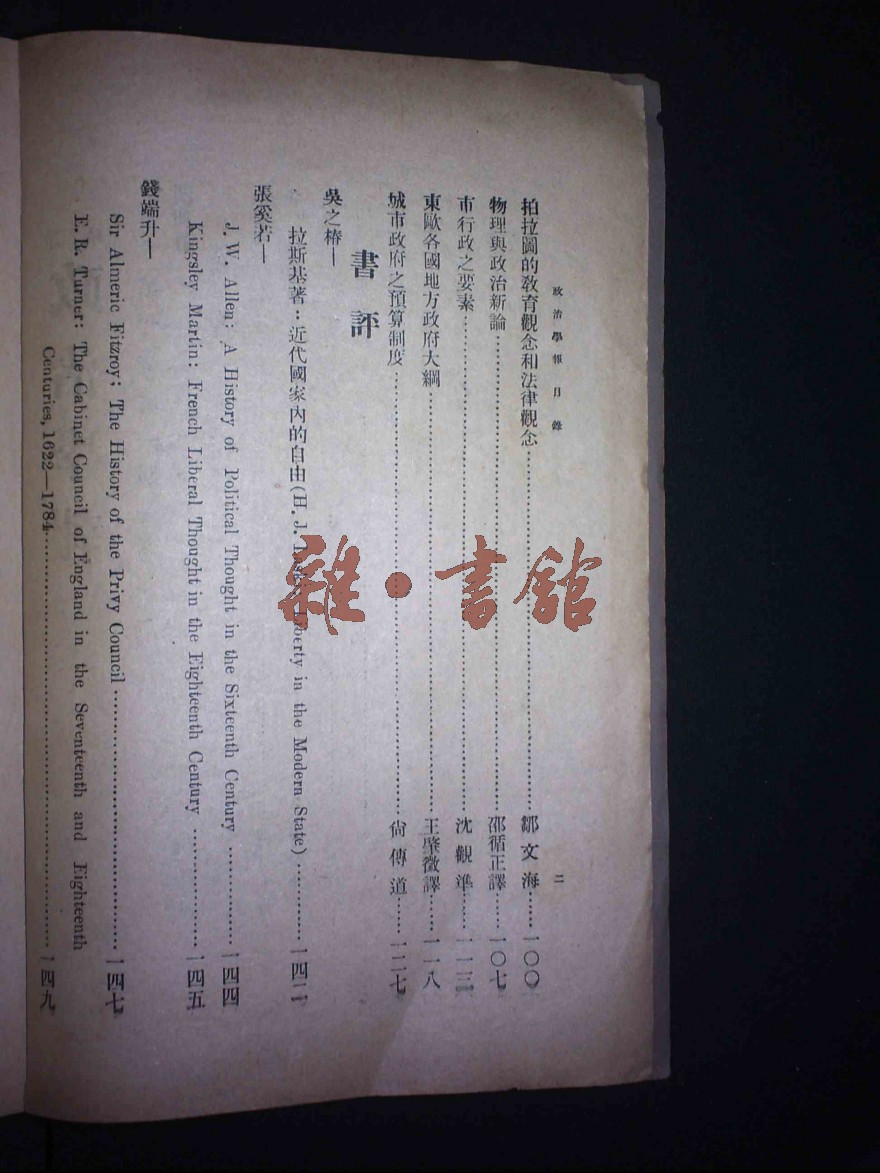 政治學報 目錄
二
拍拉圖的敎育觀念和法律觀念……鄒文海……一〇〇
物理與政治新論……邵循正譯……一〇七
市行政之要素……沈觀準……一一三
東歐各國地方政府大綱……王肇徵譯……一一八
城市政府之預算制度……尙傳道……一二七
書評
吳之椿—
拉斯基著:近代國家內的自由(H. J. Liberty in the Modern State)……一四二
張奚若—
J. W. Allen: A History of Political Thought in the Sixteenth Century……一四四
Kingsley Martin: French Liberal Thought in the Eighteenth Century……一四五
錢端升—
Sir Almeric Fitzroy: The History of the Privy Council……一四七
E. R. Turner: The Cabinet Council of England in the Seventeenth and Eighteenth
Centuries, 1622—1784……一四九
雜·書館